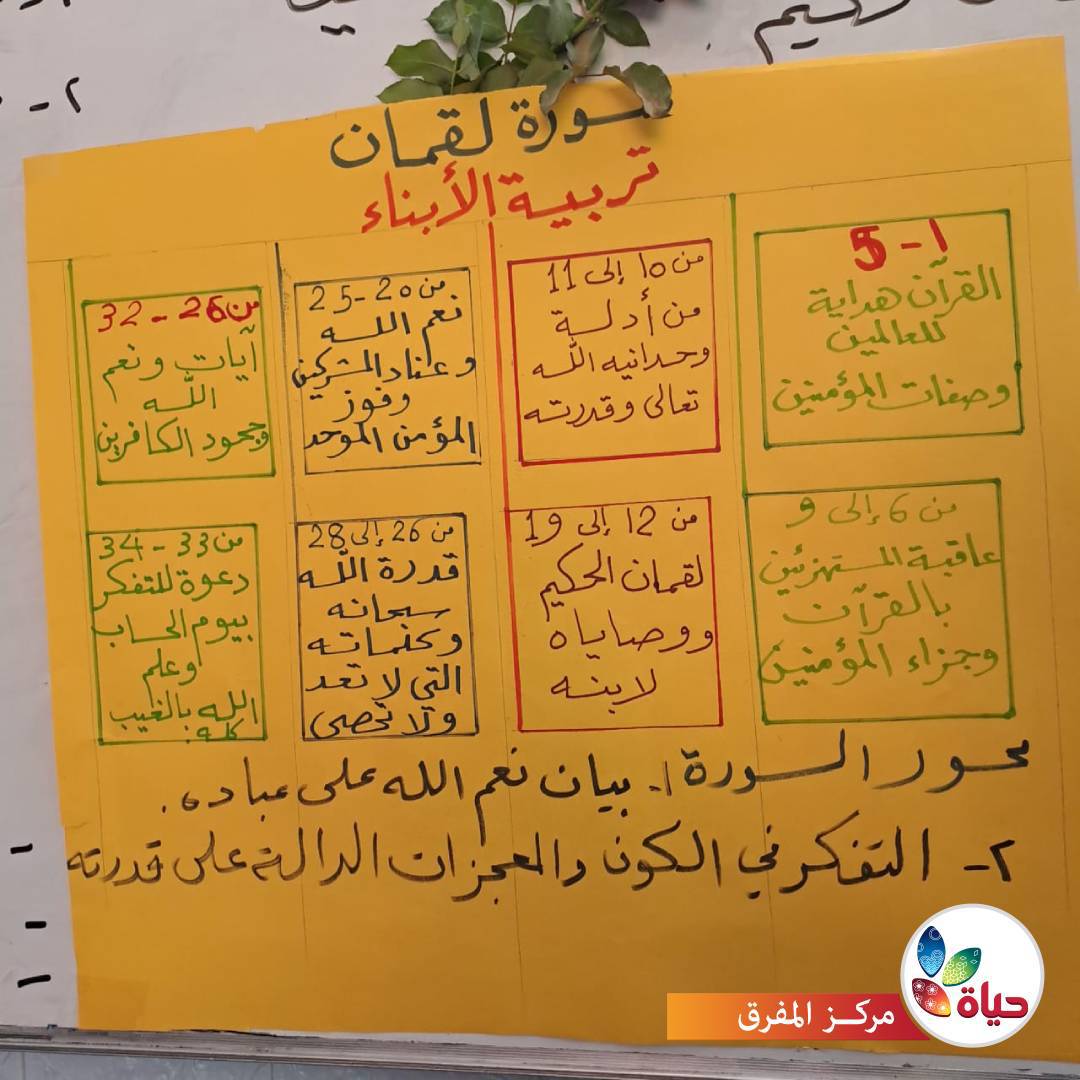 سورة لقمان
تربية الأبناء
1 - 5
القرآن هداية
للعالمين
وصفات المؤمنين
من 10 إلى 11
من أدلة
وحدانيه الله
تعالى وقدرته
من 20 - 25
نعم الله
وعناد المشركين
وفوز
المؤمن الموحد
من 26 - 32
آيات ونعم
الله
وجحود الكافرين
من 6 إلى 9
عاقبة المستهزئين
بالقرآن
وجزاء المؤمنين
من 12 إلى 19
لقمان الحكيم
ووصاياه
لابنه
من 26 إلى 28
قدرة الله
سبحانه
وكلماته
التي لا تعد
ولا تحصى
من 33 - 34
دعوة للتفكر
بيوم الحساب
وعلم
الله بالغيب
كله
محور السورة ١. بيان نعم الله على عباده.
٢- التفكر في الكون والمعجزات الدالة على قدرته
حياة
مركز المفرق